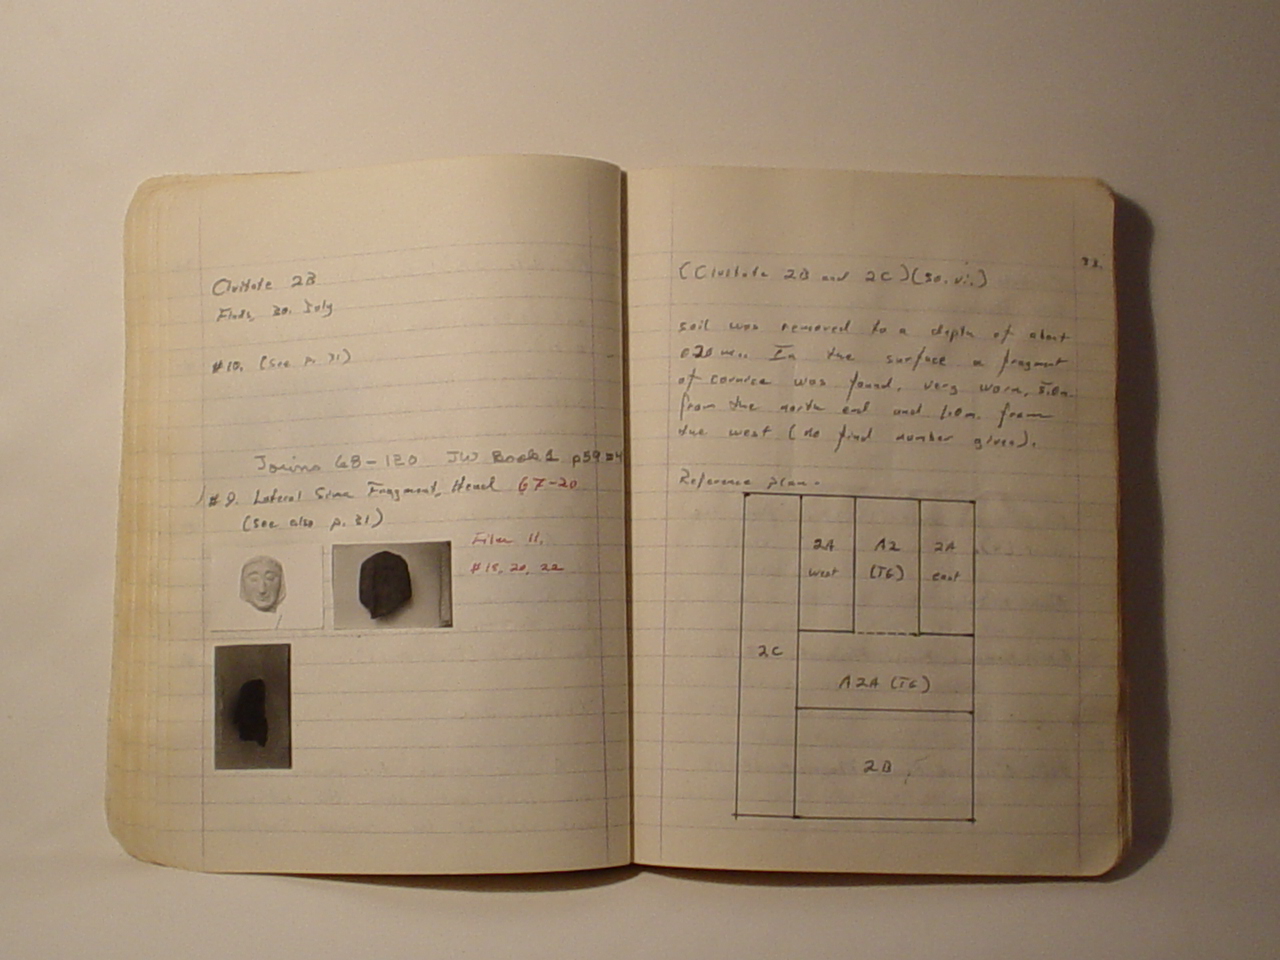 Civitate 2B
Finds, 30. July
#10. (see p. 31)
Joins 68-120 JW Book 1 p59 #4
#9. Lateral Sima Fragment, Head 67-20
(see also p. 31)
Film 11,
#18, 20, 22
33.
(Civitate 2B and 2C)(30.vi.)
soil was removed to a depth of about
020 m.. In the surface a fragment
of cornice was found, very worn,
from the north end and 1.10m. from
the west (no find number given).
Reference plan.
2A A2 2A
west (TG) east
2C
A2A (TG)
2B